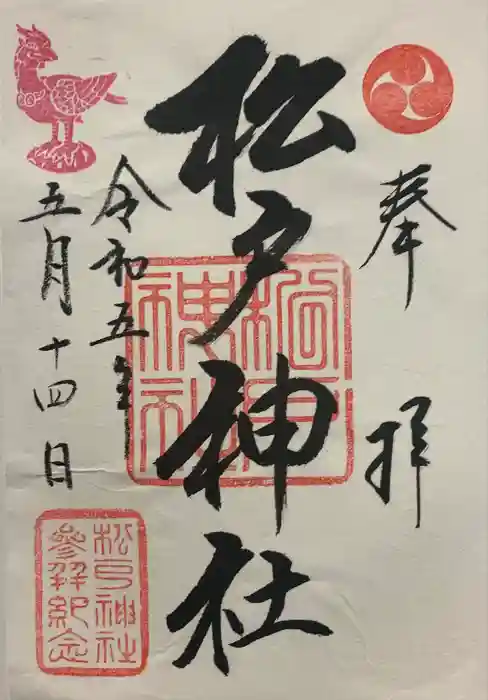 奉拝
松戸神社
令和五年
五月十四日
松戸神社
松戸神社
參拜紀念